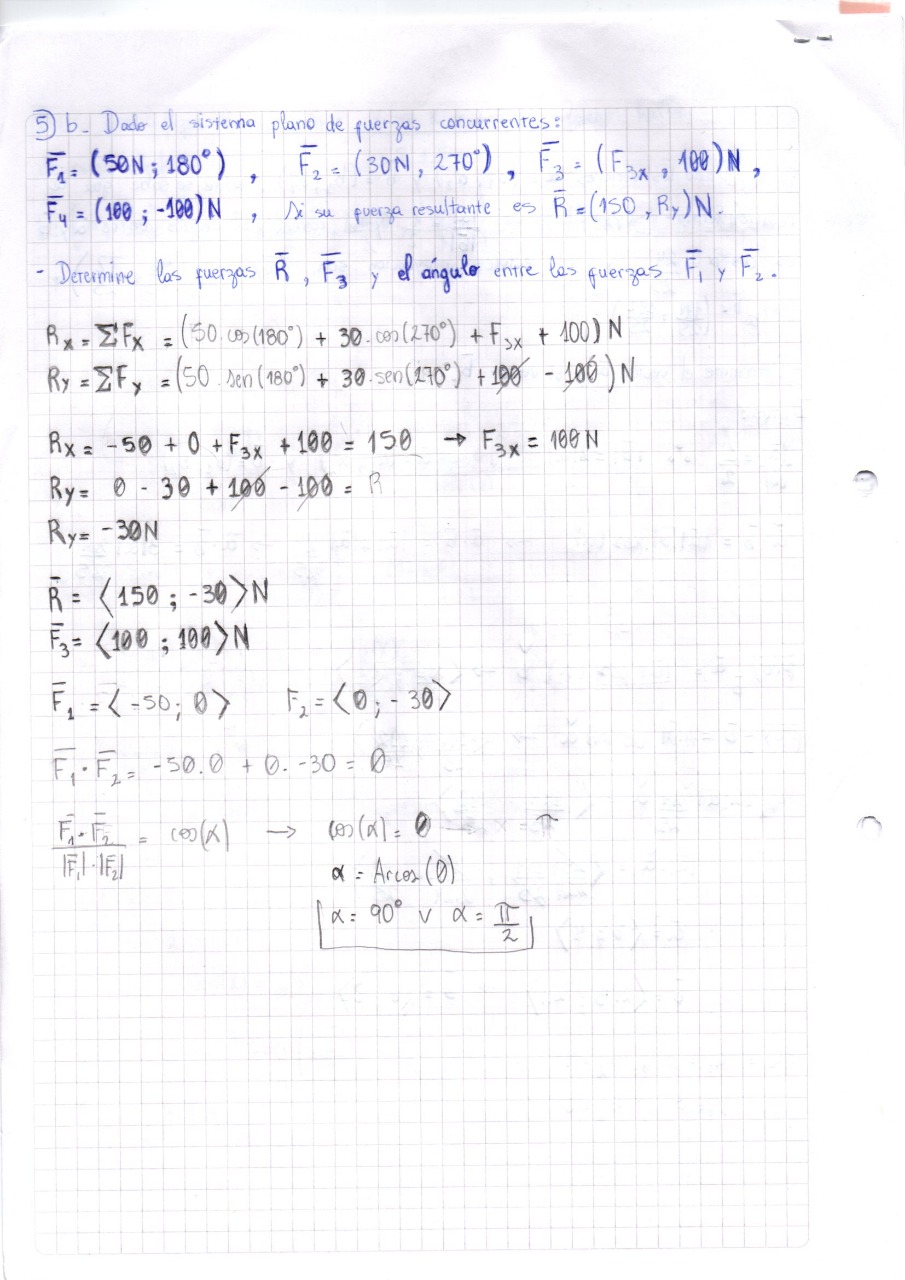 5) b- Dado el sistema plano de fuerzas concurrentes:
F̅₁ = (50N ; 180°) , F̅₂ = (30N, 270°) , F̅₃ = (F₃ₓ , 100)N ,
F̅₄ = (100 ; -100)N , Si su fuerza resultante es R̅ = (150 , Ry)N.
- Determine las fuerzas R̅ , F̅₃ y el ángulo entre las fuerzas F̅₁ y F̅₂.
Rx = ΣFx = (50.cos(180°) + 30.cos(270°) + F₃ₓ + 100) N
Ry = ΣFy = (50.sen(180°) + 30.sen(270°) + 100 - 100) N
Rx = -50 + 0 + F₃ₓ + 100 = 150 → F₃ₓ = 100N
Ry = 0 - 30 + 100 - 100 = R
Ry = -30N
R̅ = ⟨150 ; -30⟩N
F̅₃ = ⟨100 ; 100⟩N
F̅₁ = ⟨-50; 0⟩ F₂ = ⟨0 ; -30⟩
F̅₁ · F̅₂ = -50.0 + 0. -30 = 0
F̅₁·F̅₂ / |F̅₁|·|F̅₂| = cos(α) → cos(α) = 0
α = Arcos(0)
α = 90° v α = π/2